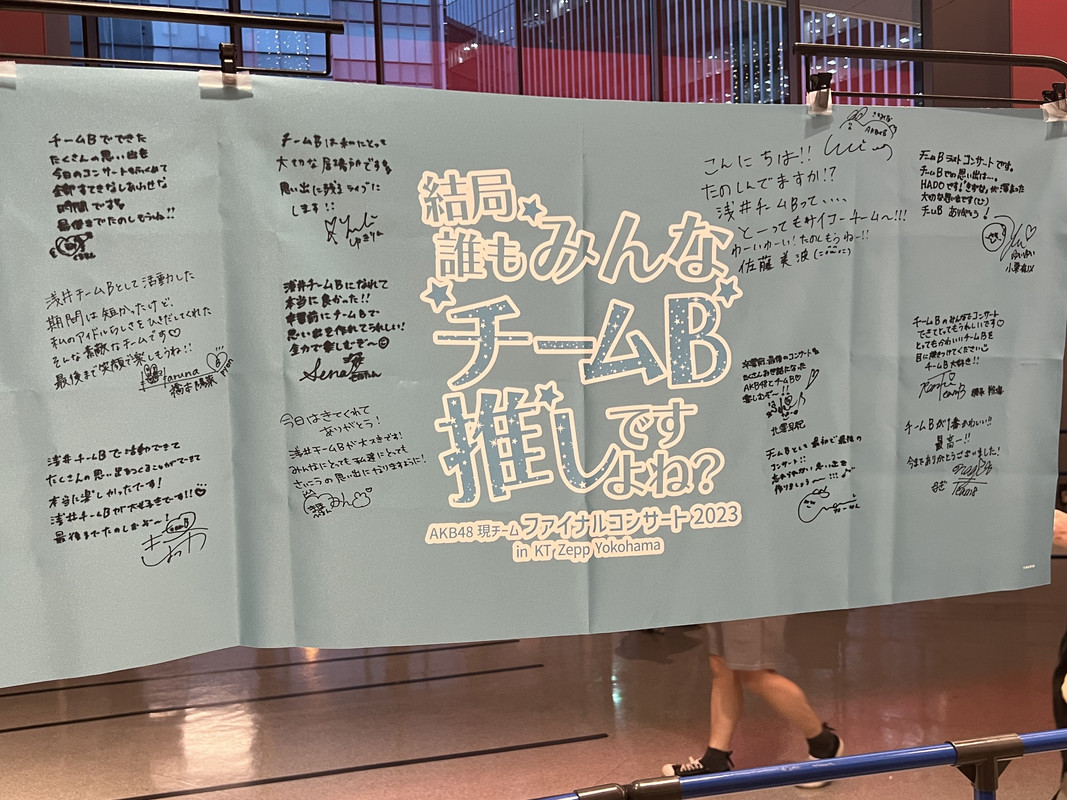 チームBでできた
たくさんの思い出も
今日のコンサートもふくめて
全部すてきなしあわせな
時間です
最後までたのしもうね!!
浅井チームBとして活動した
期間は短かったけど、
私のアイドルらしさをひきだしてくれた
そんな素敵なチームです♡
最後まで笑顔で楽しもうね!!
Haruna
橋本陽菜
浅井チームBで活動できて
たくさんの思い出をつくることができて
本当に楽しかったです!
浅井チームBが大好きです!!♡
最後までたのしむぞー!
チームBは私にとって
大切な居場所です
思い出に残るライブに
します!!
ゆきりん
浅井チームBになれて
本当に良かった!!
卒業前にチームBで
思い出を作れてうれしい!
全力で楽しむぞ〜
Sena
今日はきてくれて
ありがとう!
浅井チームBが大スきです!
みんなにとっても私達にとっても
さいこうの思い出になりますように!
結局、
誰もみんな
チームB
推しです
よね?
AKB48 現チーム ファイナルコンサート 2023
in KT Zepp Yokohama
AKB48
こんにちは!!
たのしんでますか!?
浅井チームBって....
とーってもサイコーチーム〜!!!
ゆーいゆーい!たのしもうねー!!
佐藤美波
チームBラストコンサートです。
チームBでの思い出は…。
HADOです!きずなが深まった
大切な思い出です
チームB ありがとう!
ゆいゆい
小栗有以
卒業前、最後のコンサート
たくさんお世話になった
AKB48とチームB♡
楽しむぞー!!
北澤早紀
チームBとして最初で最後の
コンサート!!
忘れられない思い出を
作りましょう〜!!!♪
チームBのみんなとコンサート
できてとってもうれしいです♡
とってもかわいいチームBを
目に焼きつけてください
チームB大好き!!
TeamB
チームBが1番かわいい!!
最高ー!!
今までありがとうございました!
Team8